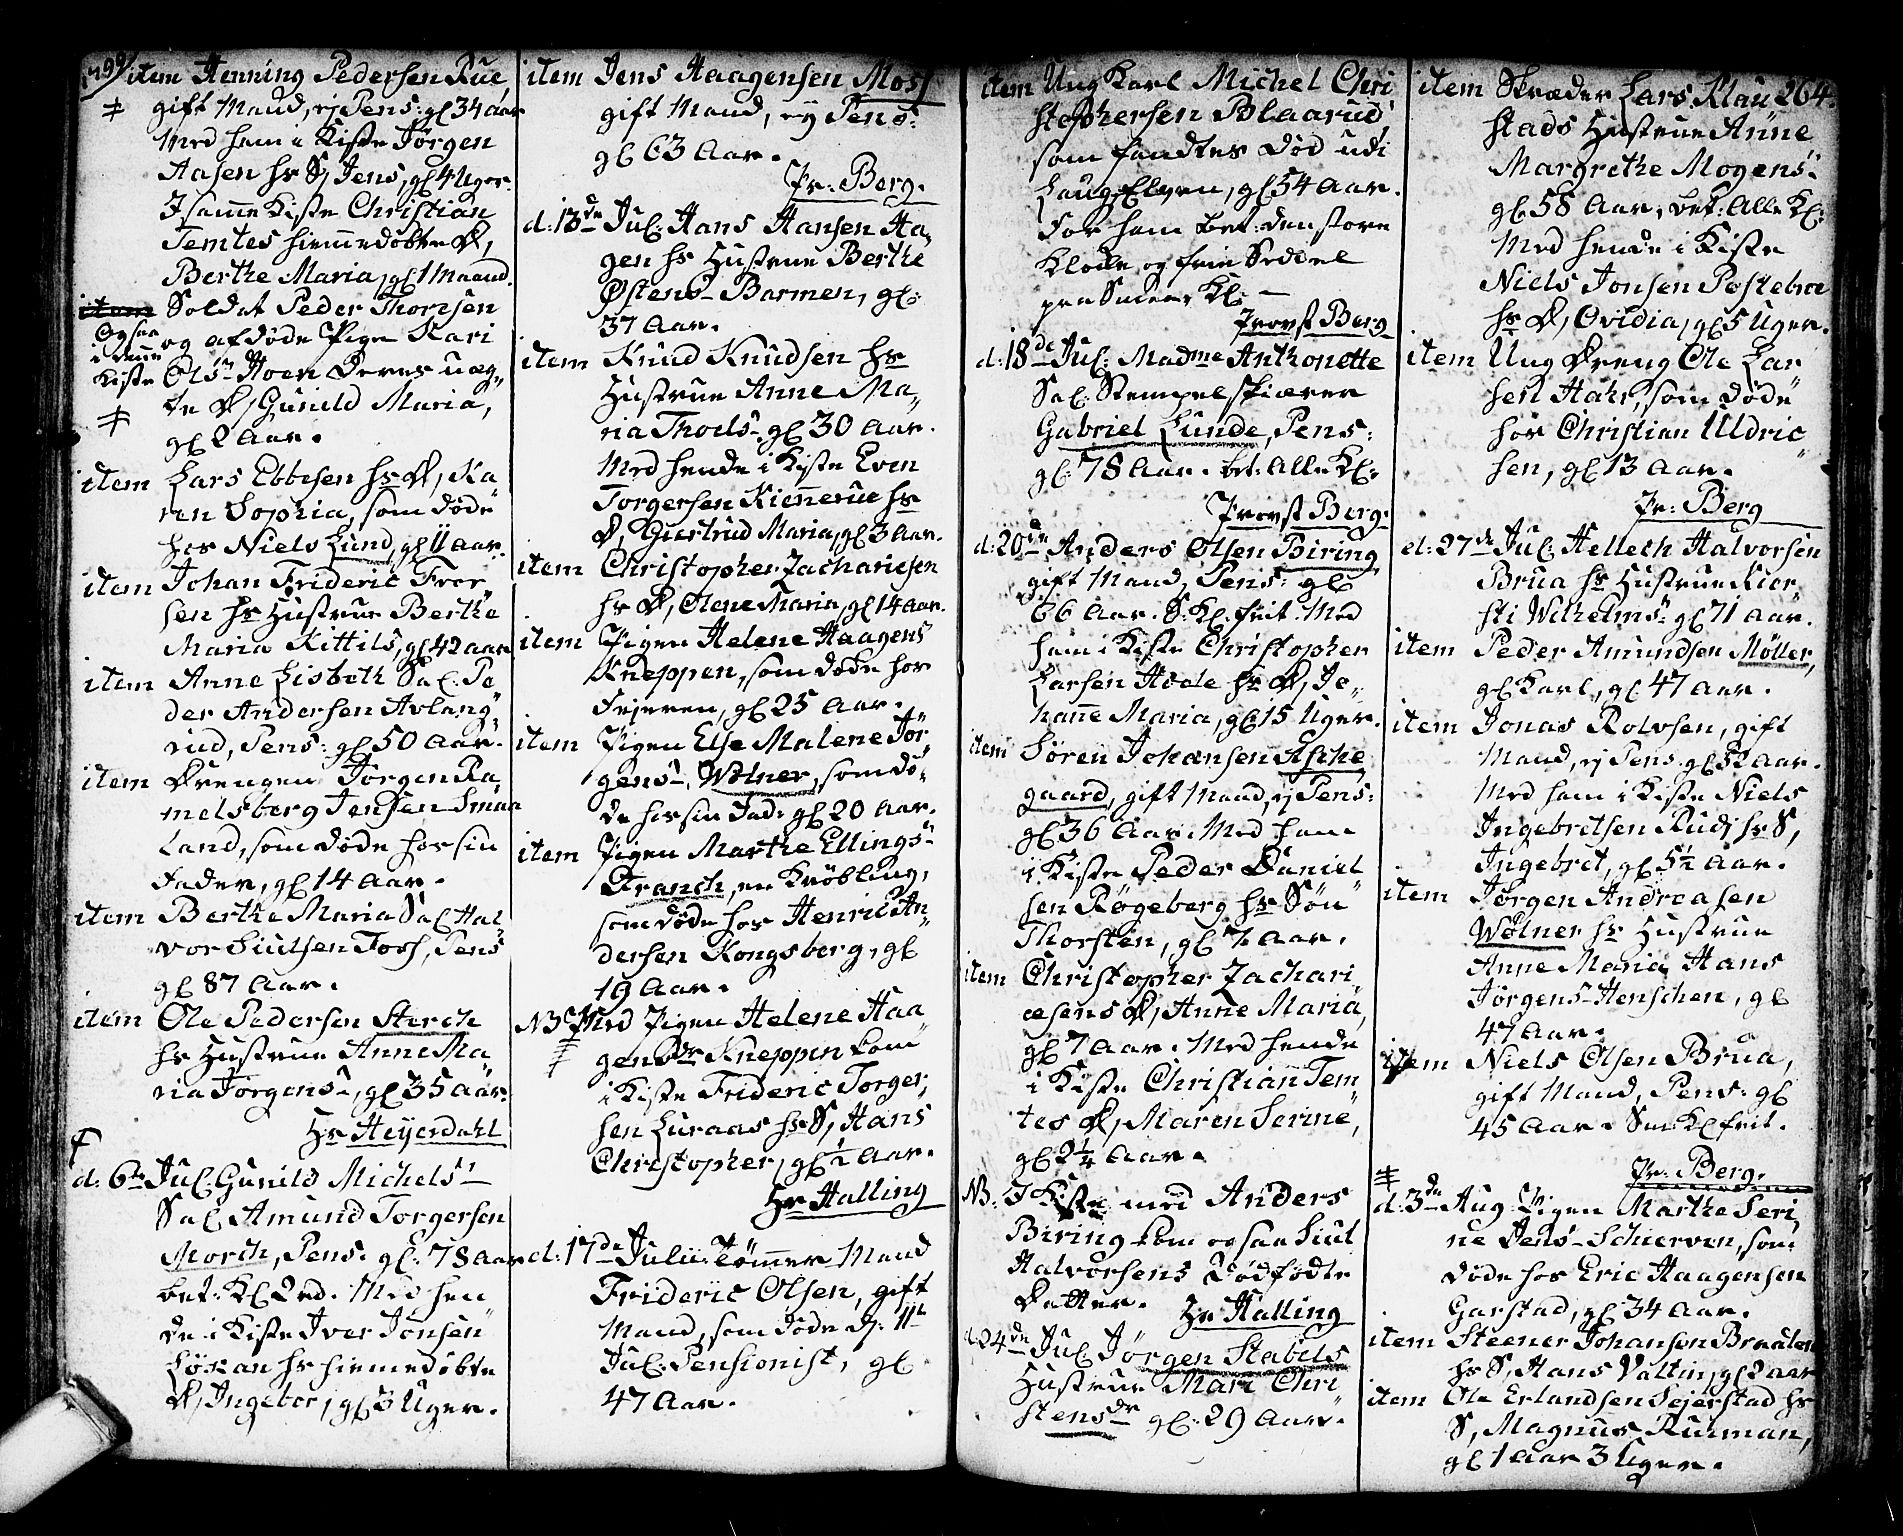 1799
item Henning Pedersen Rue
gift Mand, ej Pens: gl 34 aar
Med ham i Kiste Jørgen
Aasen hs S, Jens, gl 4 Uger.
I samme Kiste Christian
Temtes hiemmedøbte D,
Berthe Maria, gl 1 Maaned.
Soldat Peder Thoresen
Ogsaa
i denne
Kiste
og afdøde Pige Kari
Olsdr Hoen Deres uæg-
te D, Gunild Maria,
gl 2 Aar.
item Lars Ebbesen hs D, Ka
ren Sophia, som døde
hos Niels Lund, gl 11 Aar.
item Johan Frideric Fror
sen hs Hustrue Berthe
Maria Kittils, gl 42 aar
item Anne Lisbeth Sal. Pe
der Andersen Avlang
rud, Pens: gl 50 Aar.
item Drengen Jørgen Ra
melsberg Jensen Smaa
Land, som døde hos sin
Fader, gl 14 Aar.
item Berthe Maria Sal Hal
vor Siulsen Foss, Pens
gl 87 Aar.
item Ole Pedersen Sterch
hs Hustrue Anne Ma
ria Jørgens-, gl 35 Aar.
Hr Heyerdahl
d: 6te Jul. Gunild Michels-
Sal Amund Torgersen
Morch, Pens. gl: 78 Aar
bet: Kl 2ed. Med hen
de i Kiste Iver Jonsen
hs hiemmedøbte
D, Ingebor, gl 3 Uger.
item Jens Haagensen Moss
gift Mand, ej Pens:
gl 63 Aar.
Pr. Berg.
d: 13de Jul. Hans Hansen Ha
gen hs Hustrue Berthe
Østens- Barmen, gl:
37 Aar.
item Knud Knudsen hs
Hustrue Anne Ma
ria Thoels- gl 30 Aar.
Med hende i Kiste Even
Torgersen Kiennerue hs
D, Giertrud Maria, gl 3 Aar.
item Christopher Zachariesen
hs D, Olene Maria, gl 14 Aar.
item Pigen Helene Haagens
Kneppen, som døde hos
Fejeren, gl 25 Aar.
item Pigen Else Malene Jør
gens-, Wølner, som dø-
de hos sin Fad: gl 20 Aar.
item Pigen Marthe Ellings-
Franch, en Krøbling,
som døde hos Henric An
dersen Kongsberg, gl
19 Aar.
NB Med Pigen Helene Haa
gensdr Kneppen kom
i Kiste Frideric Torger
sen Luraas hs S, Hans
Christopher, gl ½ Aar.
Hr Halling
d: 17de Julii. Tømmer Mand
Frideric Olsen, gift
Mand, som døde d: 11te
Jul. Pensionist, gl
47 Aar.
item Ung Karl Michel Chri
stophersen Blaarud
som fandtes død udi
Laug Elven, gl 54 Aar.
For ham bet: den store
Klocke og frie Seddel
paa Smaae Kl. -
Provst Berg
d: 18de Jul. Madme Anthonette
Sal. Stempelskiærer
Gabriel Lunde, Pens:
gl: 78 Aar. bet: Alle Kl.
Provst Berg.
d: 20de Anders Olsen Biring
gift Mand, Pens: gl
66 Aar. S: Kl. frit. Med
ham i Kiste Christopher
Larsen Hoele hs D, Jo-
hanne Maria, gl 15 Uger.
item Søren Johansen Asche
gaard, gift Mand, ej Pens:
gl 36 Aar. Med ham
i Kiste Peder Daniel
sen Røgeberg hs Søn
Thorsten, gl ½ Aar.
item Christopher Zachari
æsens D, Anne Maria,
gl 7 Aar. Med hende
i Kiste Christian Tem
tes D, Maren Serine,
gl 2¼ Aar.
NB. I Kiste med Anders
Biring kom ogsaa Siul
Halvorsens Dødfødte
Datter.
Hr Halling
d: 24de Jul Jørgen Stabels
Hustrue Mari Chri
stensdr gl: 29 Aar.
264.
item Skræder Lars Klau
stads Hustrue Anne
Margrethe Mogens-
gl 58 Aar, bet: Alle Kl:
Med hende i Kiste
Niels Jonsen Postebroe
hs D, Ovidia, gl 5 Uger.
item Ung Dreng Ole Lar
sen Hahr, som døde
hos Christian Uldric
sen, gl 13 Aar.
Pr: Berg
d: 27de Jul: Hellech Halvorsen
Brua hs Hustrue Kier
sti Wilhelms- gl 71 Aar.
item Peder Amundsen Møller,
gl Karl, gl 47 Aar.
item Jonas Rolvsen, gift
Mand, ej Pens. gl 52 Aar.
Med ham i Kiste Niels
Ingebretsen Rudj hs S,
Ingebret, gl 5½ Aar.
item Jørgen Andreasen
Wølner hs Hustrue
Anne Maria Hans
Jørgens-Henschen, gl
47 Aar.
item Niels Olsen Brua,
gift Mand, Pens: gl
45 Aar. Smaa Kl frit.
Pr. Berg.
d: 3de Aug Pigen Marthe Seri
ne Jens- Schierven, som
døde hos Eric Haagensen
Garstad, gl 34 Aar.
item Steener Johansen Braaten
hs S, Hans Valtin, gl 2 aar
item Ole Erlandsen Sejerstad hs
S, Magnus Rusman,
gl 1 Aar 3 Uger.